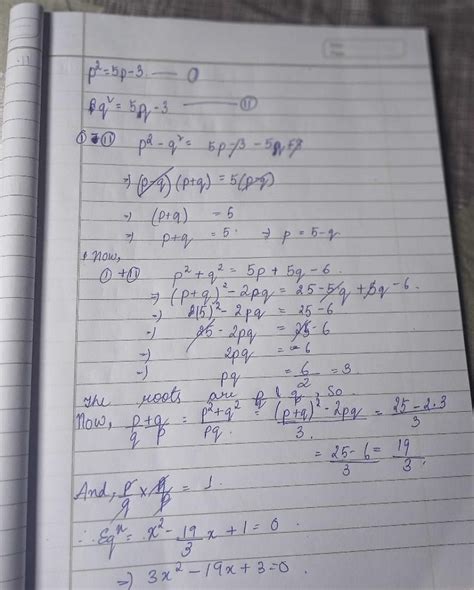 p² = 5p - 3 —— ①
q² = 5q - 3 —— ⑪
① - ⑪ p² - q² = 5p - 3 - 5q + 3
⇒ (p-q) (p+q) = 5(p-q)
⇒ (p+q) = 5
⇒ p+q = 5 ⇒ p = 5-q
Now,
① + ⑪ p² + q² = 5p + 5q - 6.
⇒ (p+q)² - 2pq = 25 - 5q + 5q - 6
⇒ (5)² - 2pq = 25 - 6
⇒ 25 - 2pq = 25 - 6
⇒ 2pq = -6
⇒ pq = 6/2 = 3.
The roots are , So
Now, p/q + q/p = (p²+q²)/pq = ((p+q)² - 2pq)/3 = (25 - 2·3)/3
= (25 - 6)/3 = 19/3.
And, p/q × q/p = 1.
∴ Eqⁿ = x² - 19/3 x + 1 = 0
⇒ 3x² - 19x + 3 = 0.